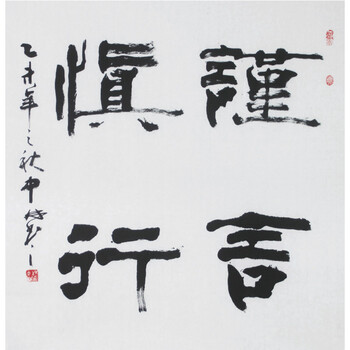 謹言
慎行
乙未年之秋中